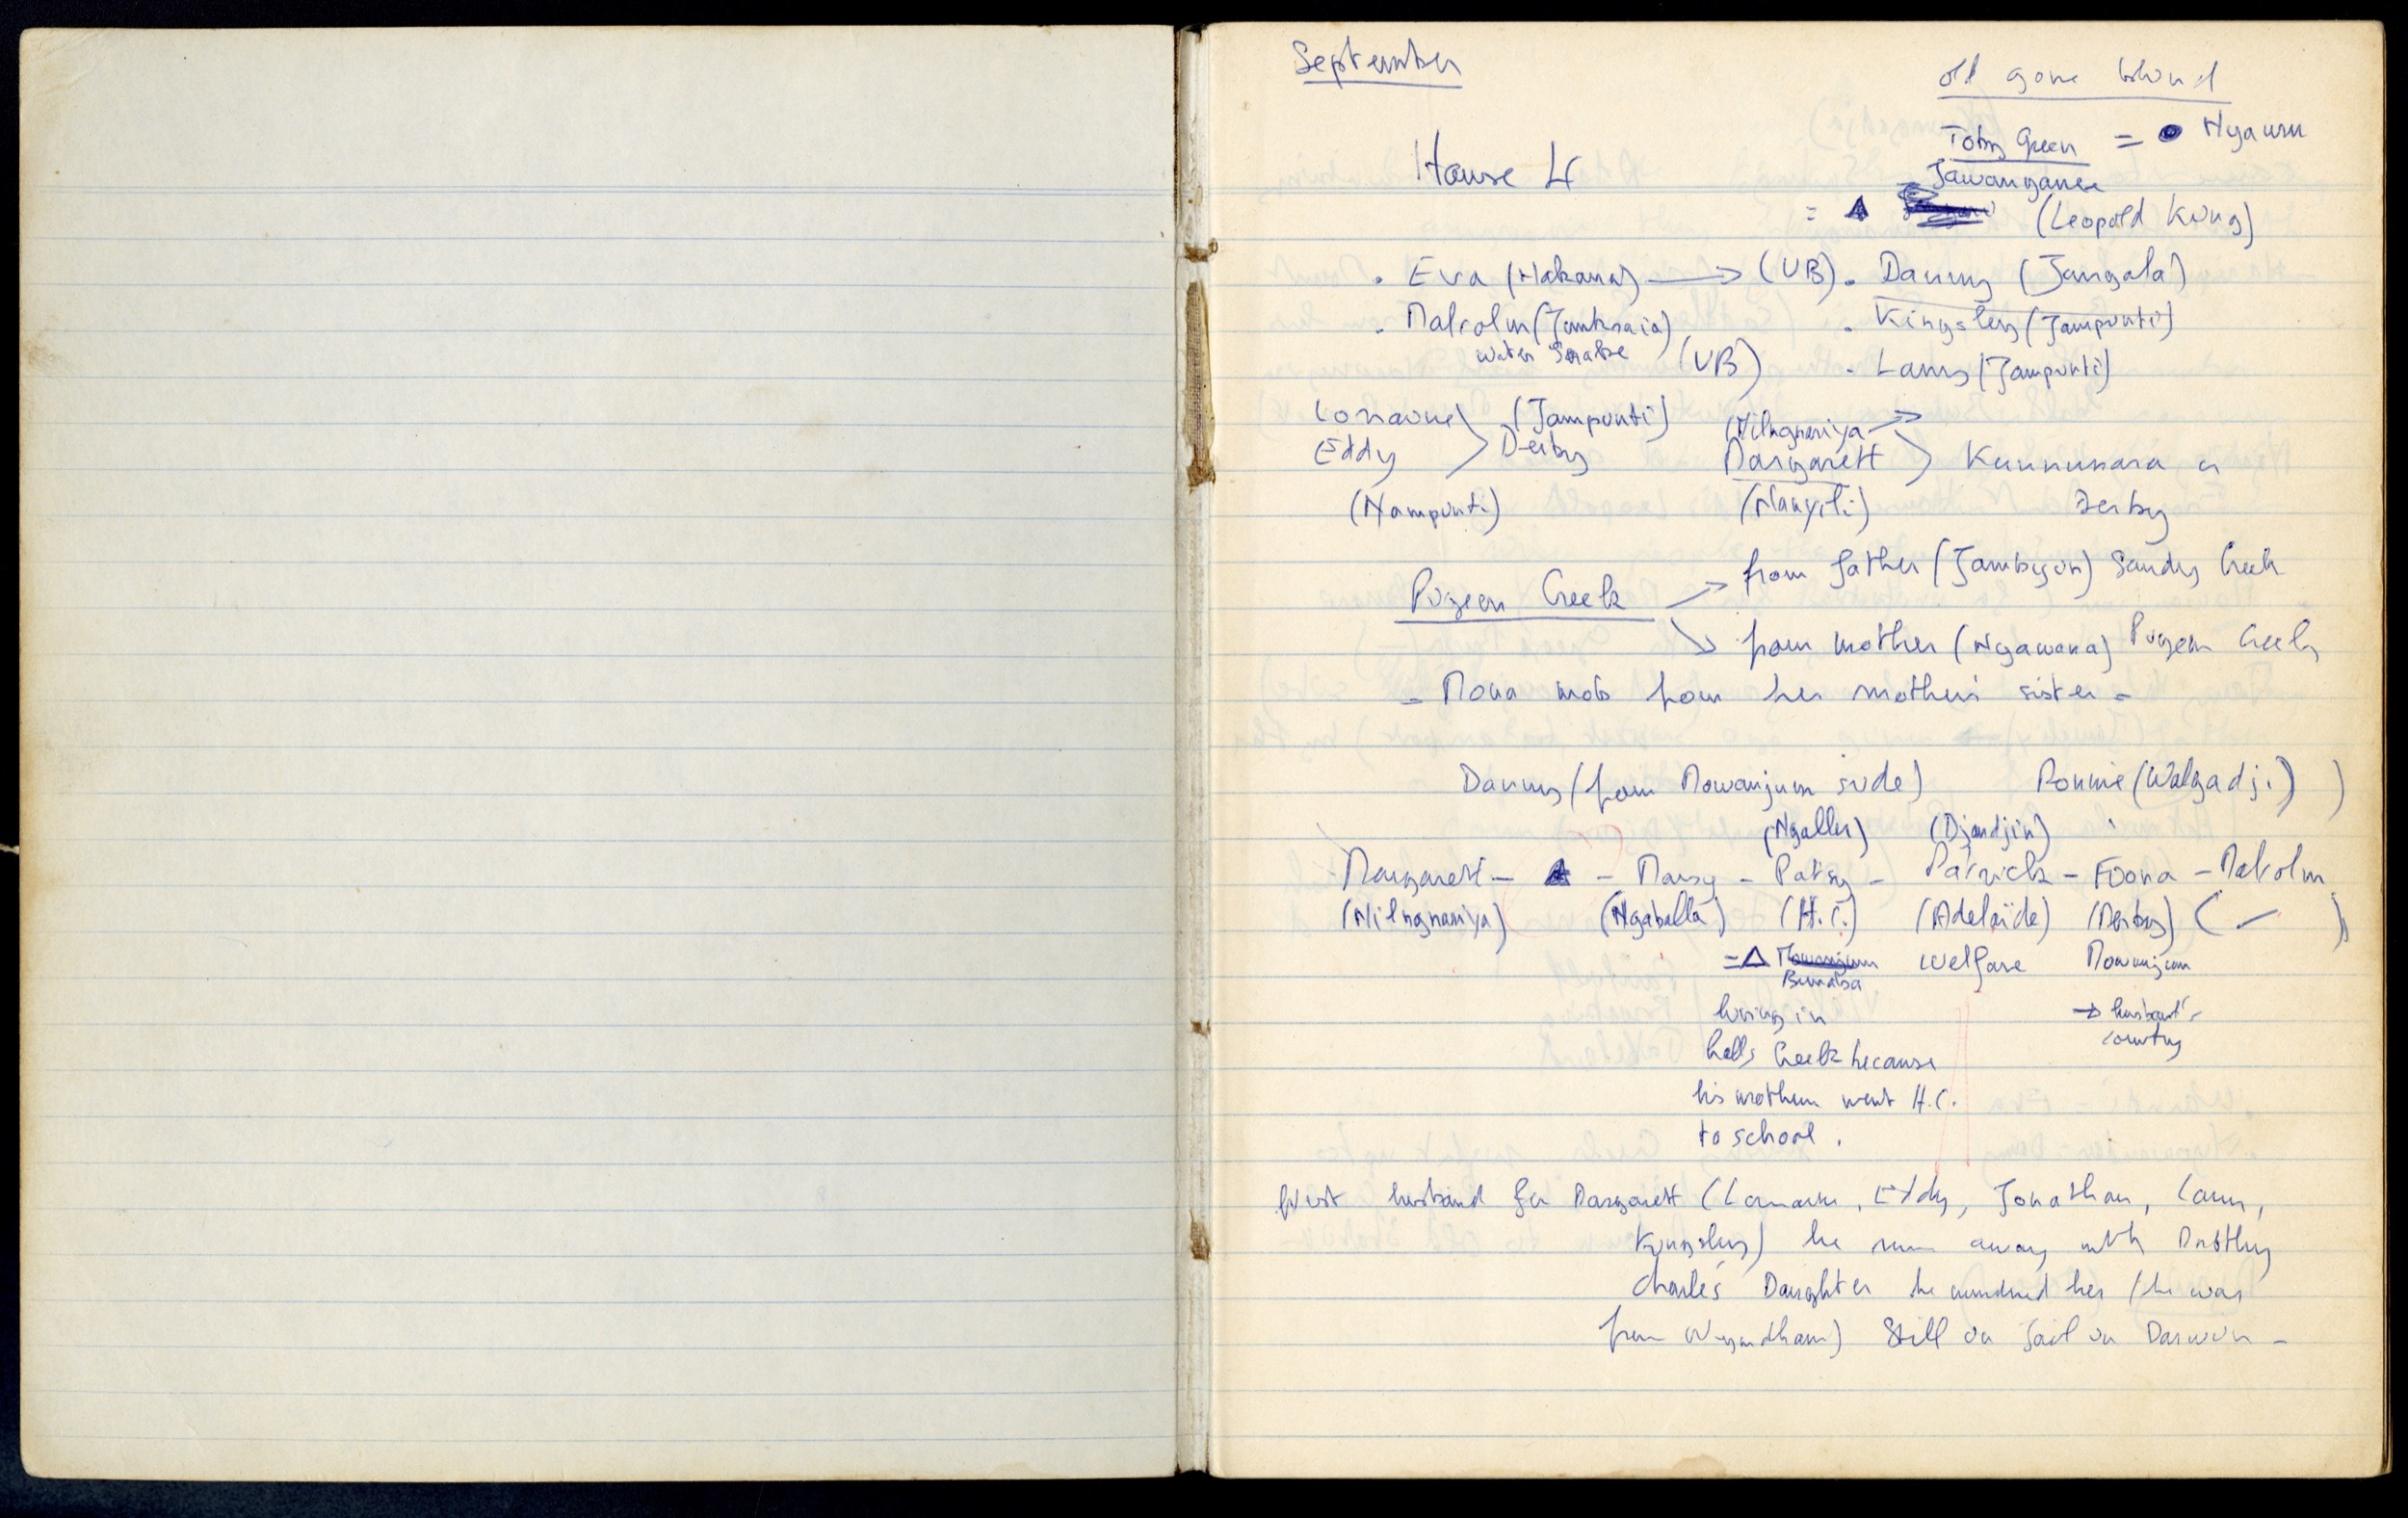 September
old gone blind
Toby Green = ● Ngauru
House 4
Jawanganea
= ▲ (Leopold King)
. Eva (Nakana) → (UB) . Danny (Jangala)
. Malcolm (Jamknaia) . Kingsley (Jampunti)
water snake (UB) . Lanny (Jampunti)
Lorraine (Jampunti) (Nilngnariya →
Eddy > Derby Margarett > Kununnara or
(Nampunti) (Nanyili) Derby
Pigeon Creek → from father (Jambijin) Sandy Creek
↘ from mother (Ngawana) Pigeon Creek
- Mona mob from her mother's sister -
Danny (from Mowanjum side) Ronnie (Walgadji)
(Ngalley) (Djandjin)
Margarett - ▲ - Maisy - Patsy - Patrick - Fiona - Malcolm
(Nilngnariya) (Ngaballa) (H.C.) (Adelaïde) (Derby) ( - )
= △ Mowanjum Welfare Mowanjum
Bunaba
living in → husband's
country
halls Creek because
his mother went H.C.
to school .
first husband for Margarett (Lorraine, Eddy, Jonathan, Lanny,
Kingsley) he run away with
charles Daughter he murdered her (he was
from Wyndham) Still in Jail in Darwin -